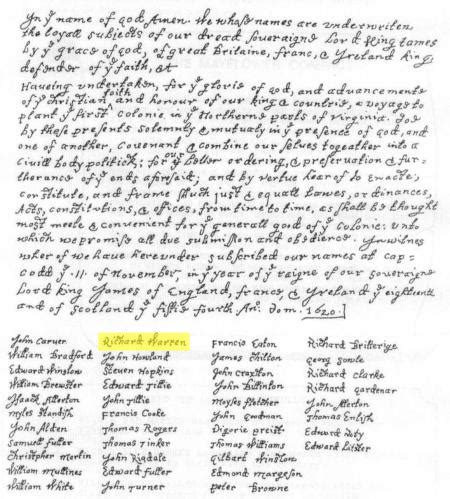 In yͤ name of god Amen. We whose names are vnderwriten,
the loyall subjects of our dread soveraigne Lord King James
by yͤ grace of god, of great Britaine, franc, & Ireland king,
defender of yͤ faith, &c
Haueing vndertaken, for yͤ glorie of god, and advancemente
of yͤ christian faith and honour of our king & countrie, a voyage to
plant yͤ first colonie in yͤ Northerne parts of virginia. doe
by these presents solemnly & mutualy in yͤ presence of god, and
one of another, couenant & combine our selues togeather into a
Ciuill body politick; for yͤ our better ordering, & preseruation & fur-
therance of yͤ ends aforesaid; and by vertue hearof to Enacte,
constitute, and frame shuch just & equall Lawes, ordinances,
Acts, constitutions, & offices, from time to time, as shall be thought
most meete & convenient for yͤ generall good of yͤ colonie: vnto
which we promise all due submission and obedience. In witnes
wherof we haue hereunder subscribed our names at cap-
codd yͤ .11. of November, in yͤ year of yͤ raigne of our soueraigne
Lord king James of England, franc, & Ireland yͤ eighteenth
and of scotland yͤ fiftie fourth. An͞o: dom. 1620.]
John Caruer
William Bradford
Edward Winslow
William Brewster
Isaack Allerton
Myles Standish
John Alden
Samuell fuller
Christopher Martin
William Mullines
William White
Richard Warren
John Howland
Steuen Hopkins
Edward Tillie
John Tillie
Francis Cooke
Thomas Rogers
Thomas Tinker
John Rigdale
Edward fuller
John Turner
Francis Eaton
James Chilton
John Craxton
John Billinton
Moyses fletcher
John goodman
Digorie Preist
Thomas Williams
Gilbert Winslow
Edmond Margeson
Peter Browne
Richard Britterige
Georg Sowle
Richard Clarke
Richard gardenar
John Allerton
Thomas English
Edward Doty
Edward Leister